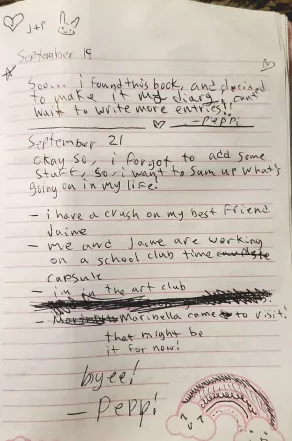 J+P
September 19
Soo... i found this book, and decided
to make it my diary, cant
wait to write more entries!,
-Peppi
September 21
Okay so, i forgot to add some
stuff, so i want to sum up what's
going on in my life!
- i have a crush on my best friend
Jaime
- me and Jaime are working
on a school club time
capsule
- i'm in the art club
- Maribella came to visit!
that might be
it for now!
byee!
- Peppi